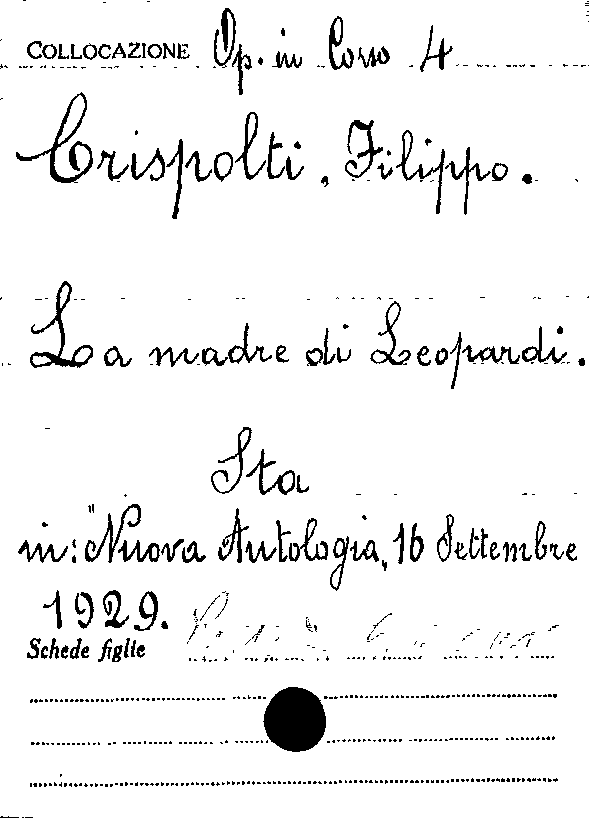 COLLOCAZIONE Op. in Corso 4
Crispolti, Filippo.
La madre di Leopardi.
Sta
in: "Nuova Antologia, 16 Settembre
1929.
Schede figlie